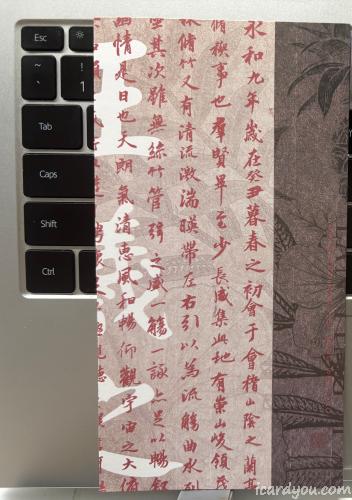 Esc
~
`
!
1
Tab
Caps
Shift
Ctrl
永和九年歲在癸丑暮春之初會于會稽山陰之蘭亭
脩稧事也羣賢畢至少長咸集此地有崇山峻領茂
林脩竹又有清流激湍暎帶左右引以為流觴曲水列
坐其次雖無絲竹管弦之盛一觴一詠亦足以暢敘
幽情是日也天朗氣清惠風和暢仰觀宇宙之大俯
王羲之
icardyou.com